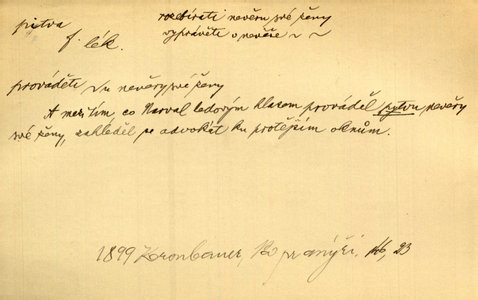 pitva
f. lék.
rozebírati nevěru své ženy
vyprávěti o nevěře ~ ~
prováděti ~u nevěry své ženy
A mezitím, co Narval ledovým hlasem prováděl pytvu nevěry
své ženy, zahleděl se advokát ku protějším oknům.
1899 Kronbauer, Na pranýři, 23